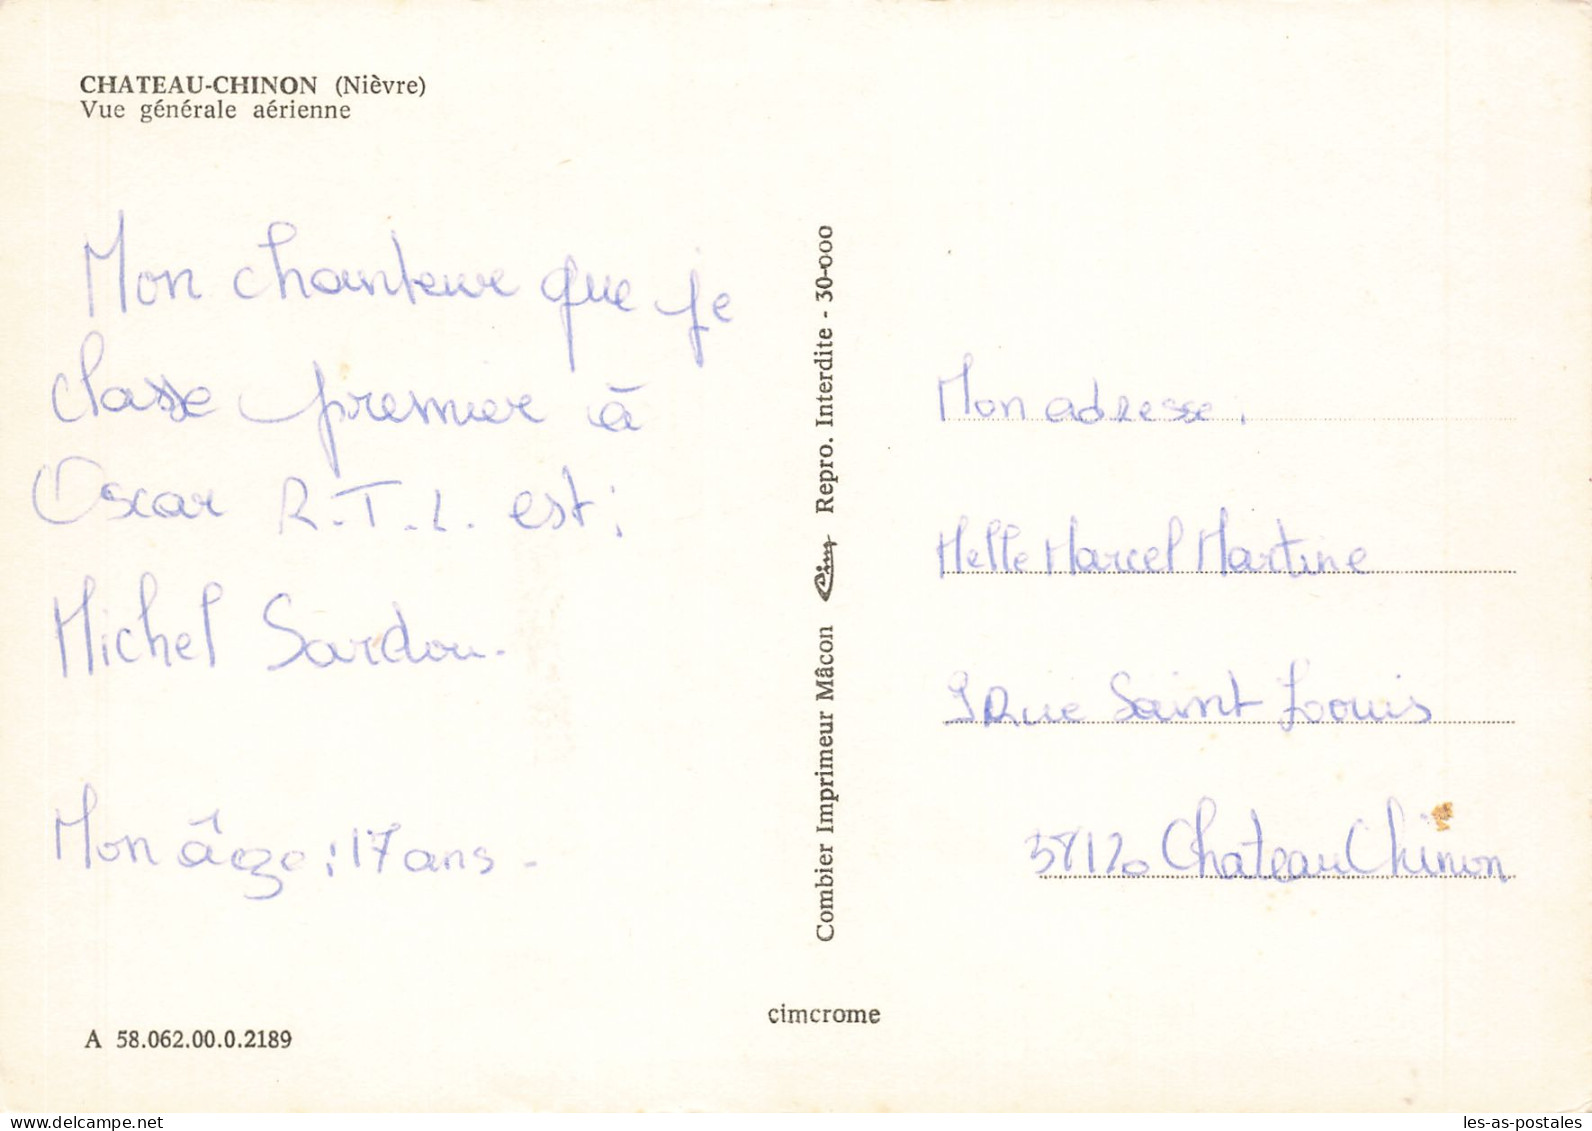 CHATEAU-CHINON (Nièvre)
Vue générale aérienne
Mon chanteur que je
classe premier à
Oscar R.T.L. est :
Michel Sardou.
Mon âge : 17 ans -
A 58.062.00.0.2189
Combier Imprimeur Mâcon Cim Repro. Interdite - 30-000
cimcrome
Mon adresse.
Melle Marcel Martine
9 Rue Saint Louis
58120 Chateau Chinon
les-as-postales
www.delcampe.net